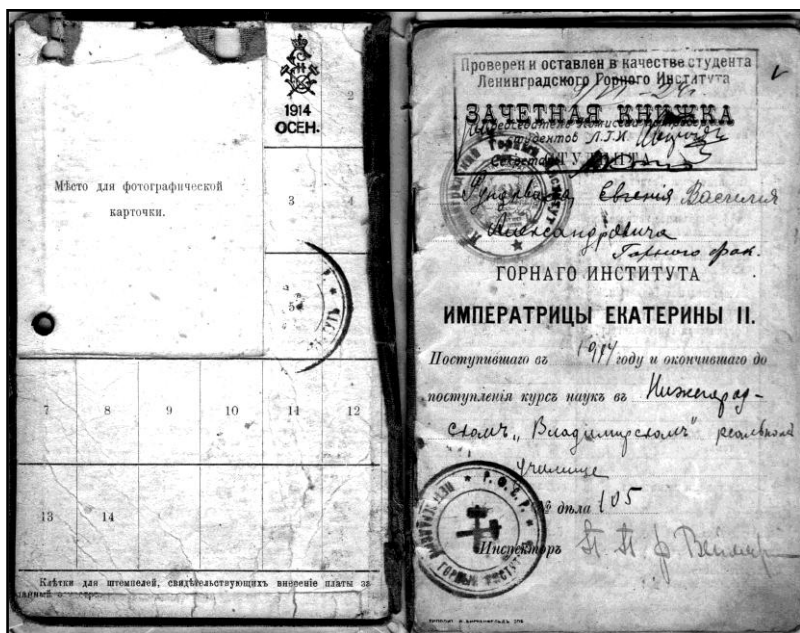 1914
ОСЕН.
2
Мѣсто для фотографической
карточки.
3
4
5
7
8
9
10
11
12
13
14
Клѣтки для штемпелей, свидѣтельствующихъ внесеніе платы за
данный
Проверен и оставлен в качестве студента
Ленинградского Горного Института
ЗАЧЕТНАЯ КНИЖКА
студентов Л.Г.И.
Секретарь
Евгенія Василія
Александровича
Горного фак.
ГОРНАГО ИНСТИТУТА
ИМПЕРАТРИЦЫ ЕКАТЕРИНЫ II.
Поступившаго въ 1914 году и окончившаго до
поступленія курсъ наукъ въ Нижегород-
скомъ „Владимірскомъ" реальном
училище
№ дѣла 105
Р.С.Ф.С.Р.
ГОРНЫЙ ИНСТИТУТ
Инспекторъ